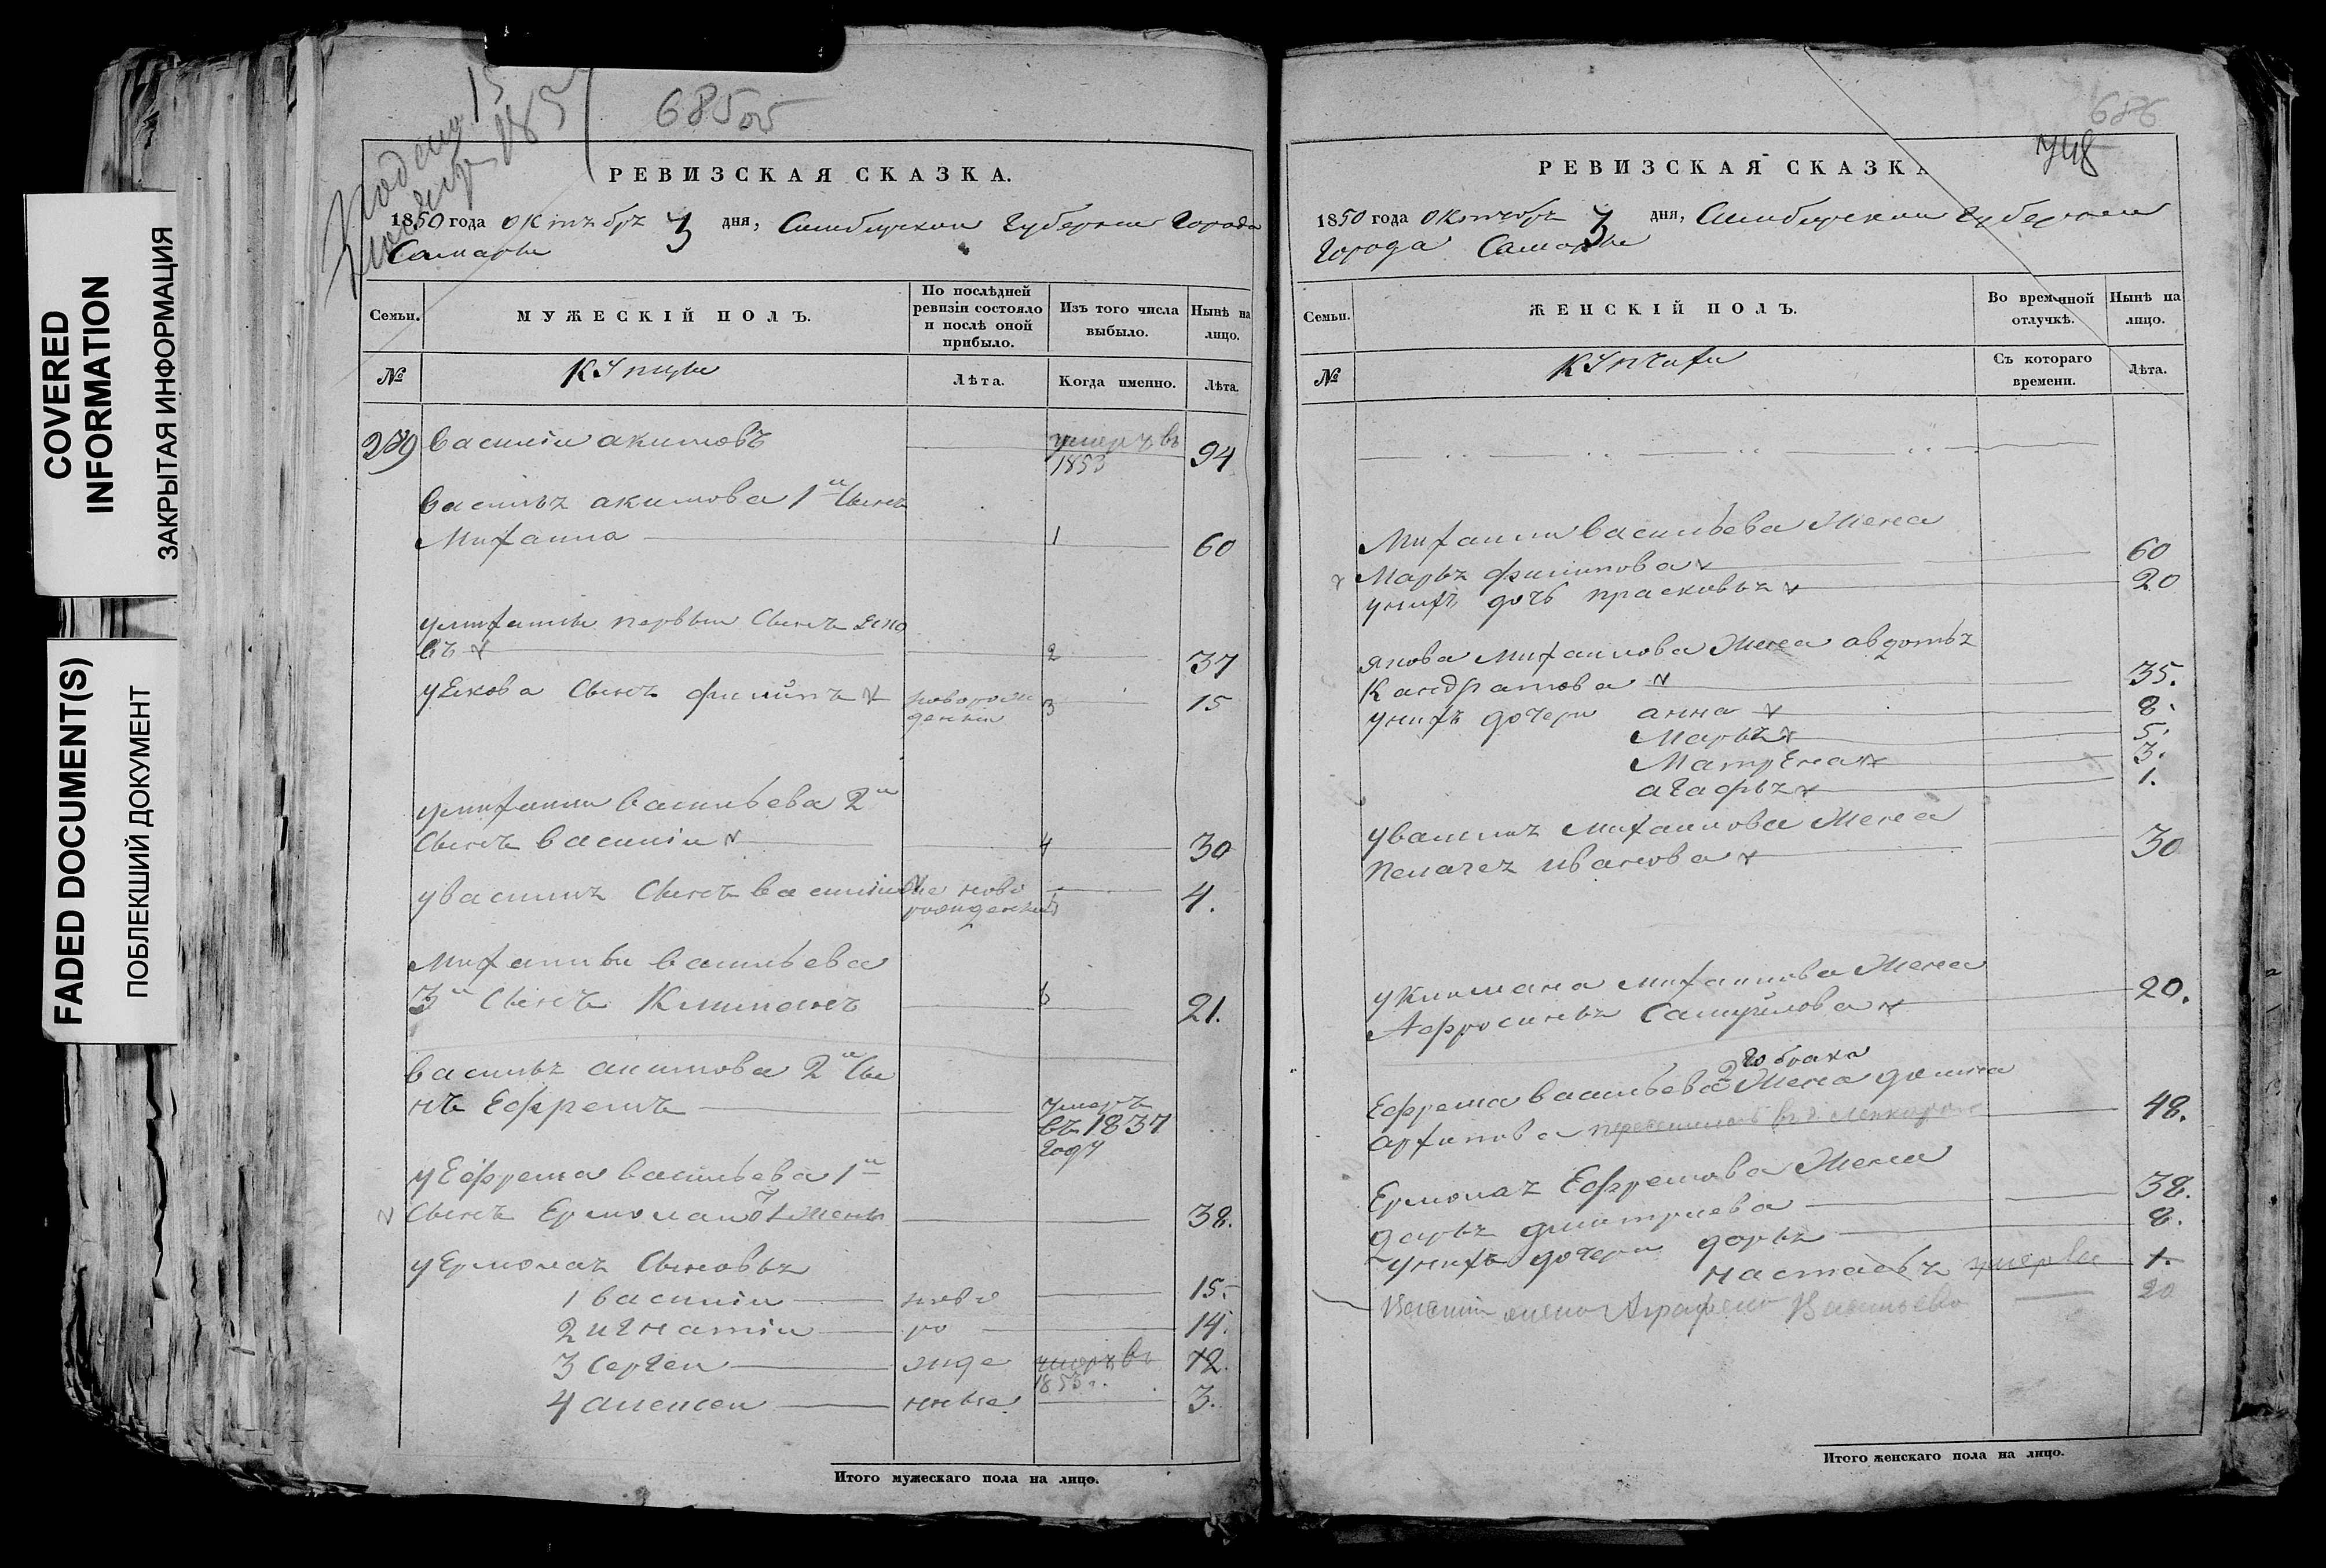 COVERED
INFORMATION
ЗАКРЫТАЯ ИНФОРМАЦИЯ
FADED DOCUMENT(S)
ПОБЛЕКШИЙ ДОКУМЕНТ
685об
РЕВИЗСКАЯ СКАЗКА.
1850 года октября 3 дня, Симбирской Губернии Города
Самары
Семьи. МУЖЕСКІЙ ПОЛЪ. По послѣдней ревизіи состояло и послѣ оной прибыло. Изъ того числа выбыло. Нынѣ на лицо.
№ Купцы Лѣта. Когда именно. Лѣта.
Василіи акимовъ умеръ въ 1853 94
Василья акимова 1й Сынъ
Михаила 1 60
умихаилы первыи Сынъ Яко
въ 2 37
уЕкова Сынъ филипъ новорож
денныи 3 15
умихаилы Васильева 2й
Сынъ Василіи 4 30
уВасилья Сынъ Василіи не ново
рожденныи 5 4.
Михаилы Васильева
3й Сынъ Климанъ 6 21.
Василья акимова 2й Сы
нъ Ефремъ умеръ
въ 1837
году
уЕфрема Васильева 1й
Сынъ Ермолаи от 1 жены 38.
уЕрмолая Сыновья
1 Василіи ново 15.
2 игнатіи ро 14.
3 Сергеи жде умеръ въ 1853 г. 12.
4 алексеи нные 3.
Итого мужескаго пола на лицо.
686
748
РЕВИЗСКАЯ СКАЗКА
1850 года Октября 3 дня, Симбирскои Губернии
Города Самары
Семьи. ЖЕНСКІЙ ПОЛЪ. Во временной отлучкѣ. Нынѣ на лицо.
№ Купчихи Съ котораго времени. Лѣта.
Михаилы Васильева Жена
Марья филипова 60
унихъ дочь прасковья 20
якова Михаилова Жена авдотья
Кандратова 35.
унихъ дочери анна 8.
Марья 5.
Матрена 3.
агафья 1.
уВасилья михаилова Жена
Пелагея иванова 30
уКлимана михаилова Жена
Афросинья Самуйлова 20.
2 го брака
Ефрема Васильева Жена домна
архипова 48.
Ермолая Ефремова Жена
дарья дмитриева 38.
унихъ дочери дарья 8.
настасья умерла 1.
Василія жена Аграфена Васильева 20
Итого женскаго пола на лицо.